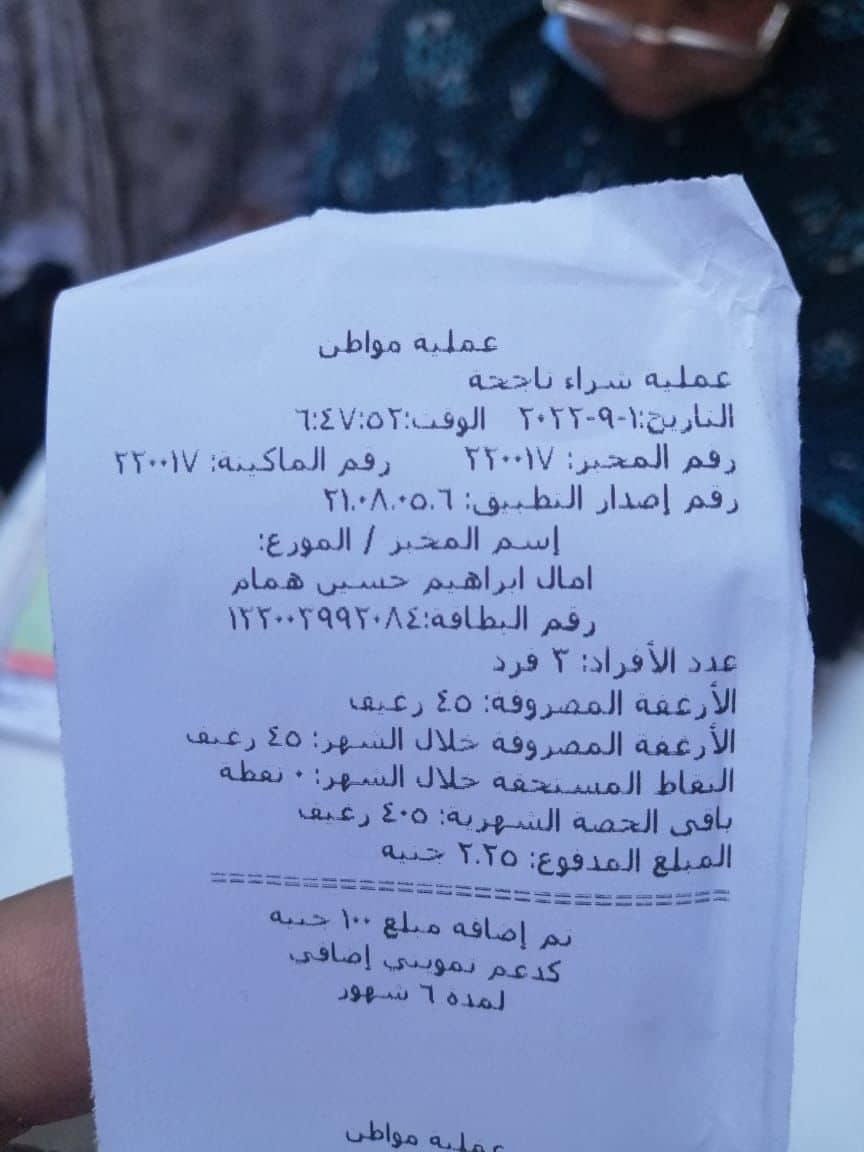 عملية مواطن
عملية شراء ناجحة
التاريخ:١-٩-٢٠٢٢ الوقت:٦:٤٧:٥٢
رقم المخبز: ٢٢٠٠١٧ رقم الماكينة: ٢٢٠٠١٧
رقم إصدار التطبيق: ٢١.٠٨.٠٥.٦
إسم المخبز / الموزع:
امال ابراهيم حسين همام
رقم البطاقة:١٢٢٠٠٢٩٩٢٠٨٤
عدد الأفراد: ٣ فرد
الأرغفة المصروفة: ٤٥ رغيف
الأرغفة المصروفة خلال الشهر: ٤٥ رغيف
النقاط المستحقة خلال الشهر: ٠ نقطة
باقى الحصة الشهرية: ٤٠٥ رغيف
المبلغ المدفوع: ٢.٢٥ جنيه
==============================
تم إضافة مبلغ ١٠٠ جنيه
كدعم تمويني إضافي
لمدة ٦ شهور
عملية مواطن